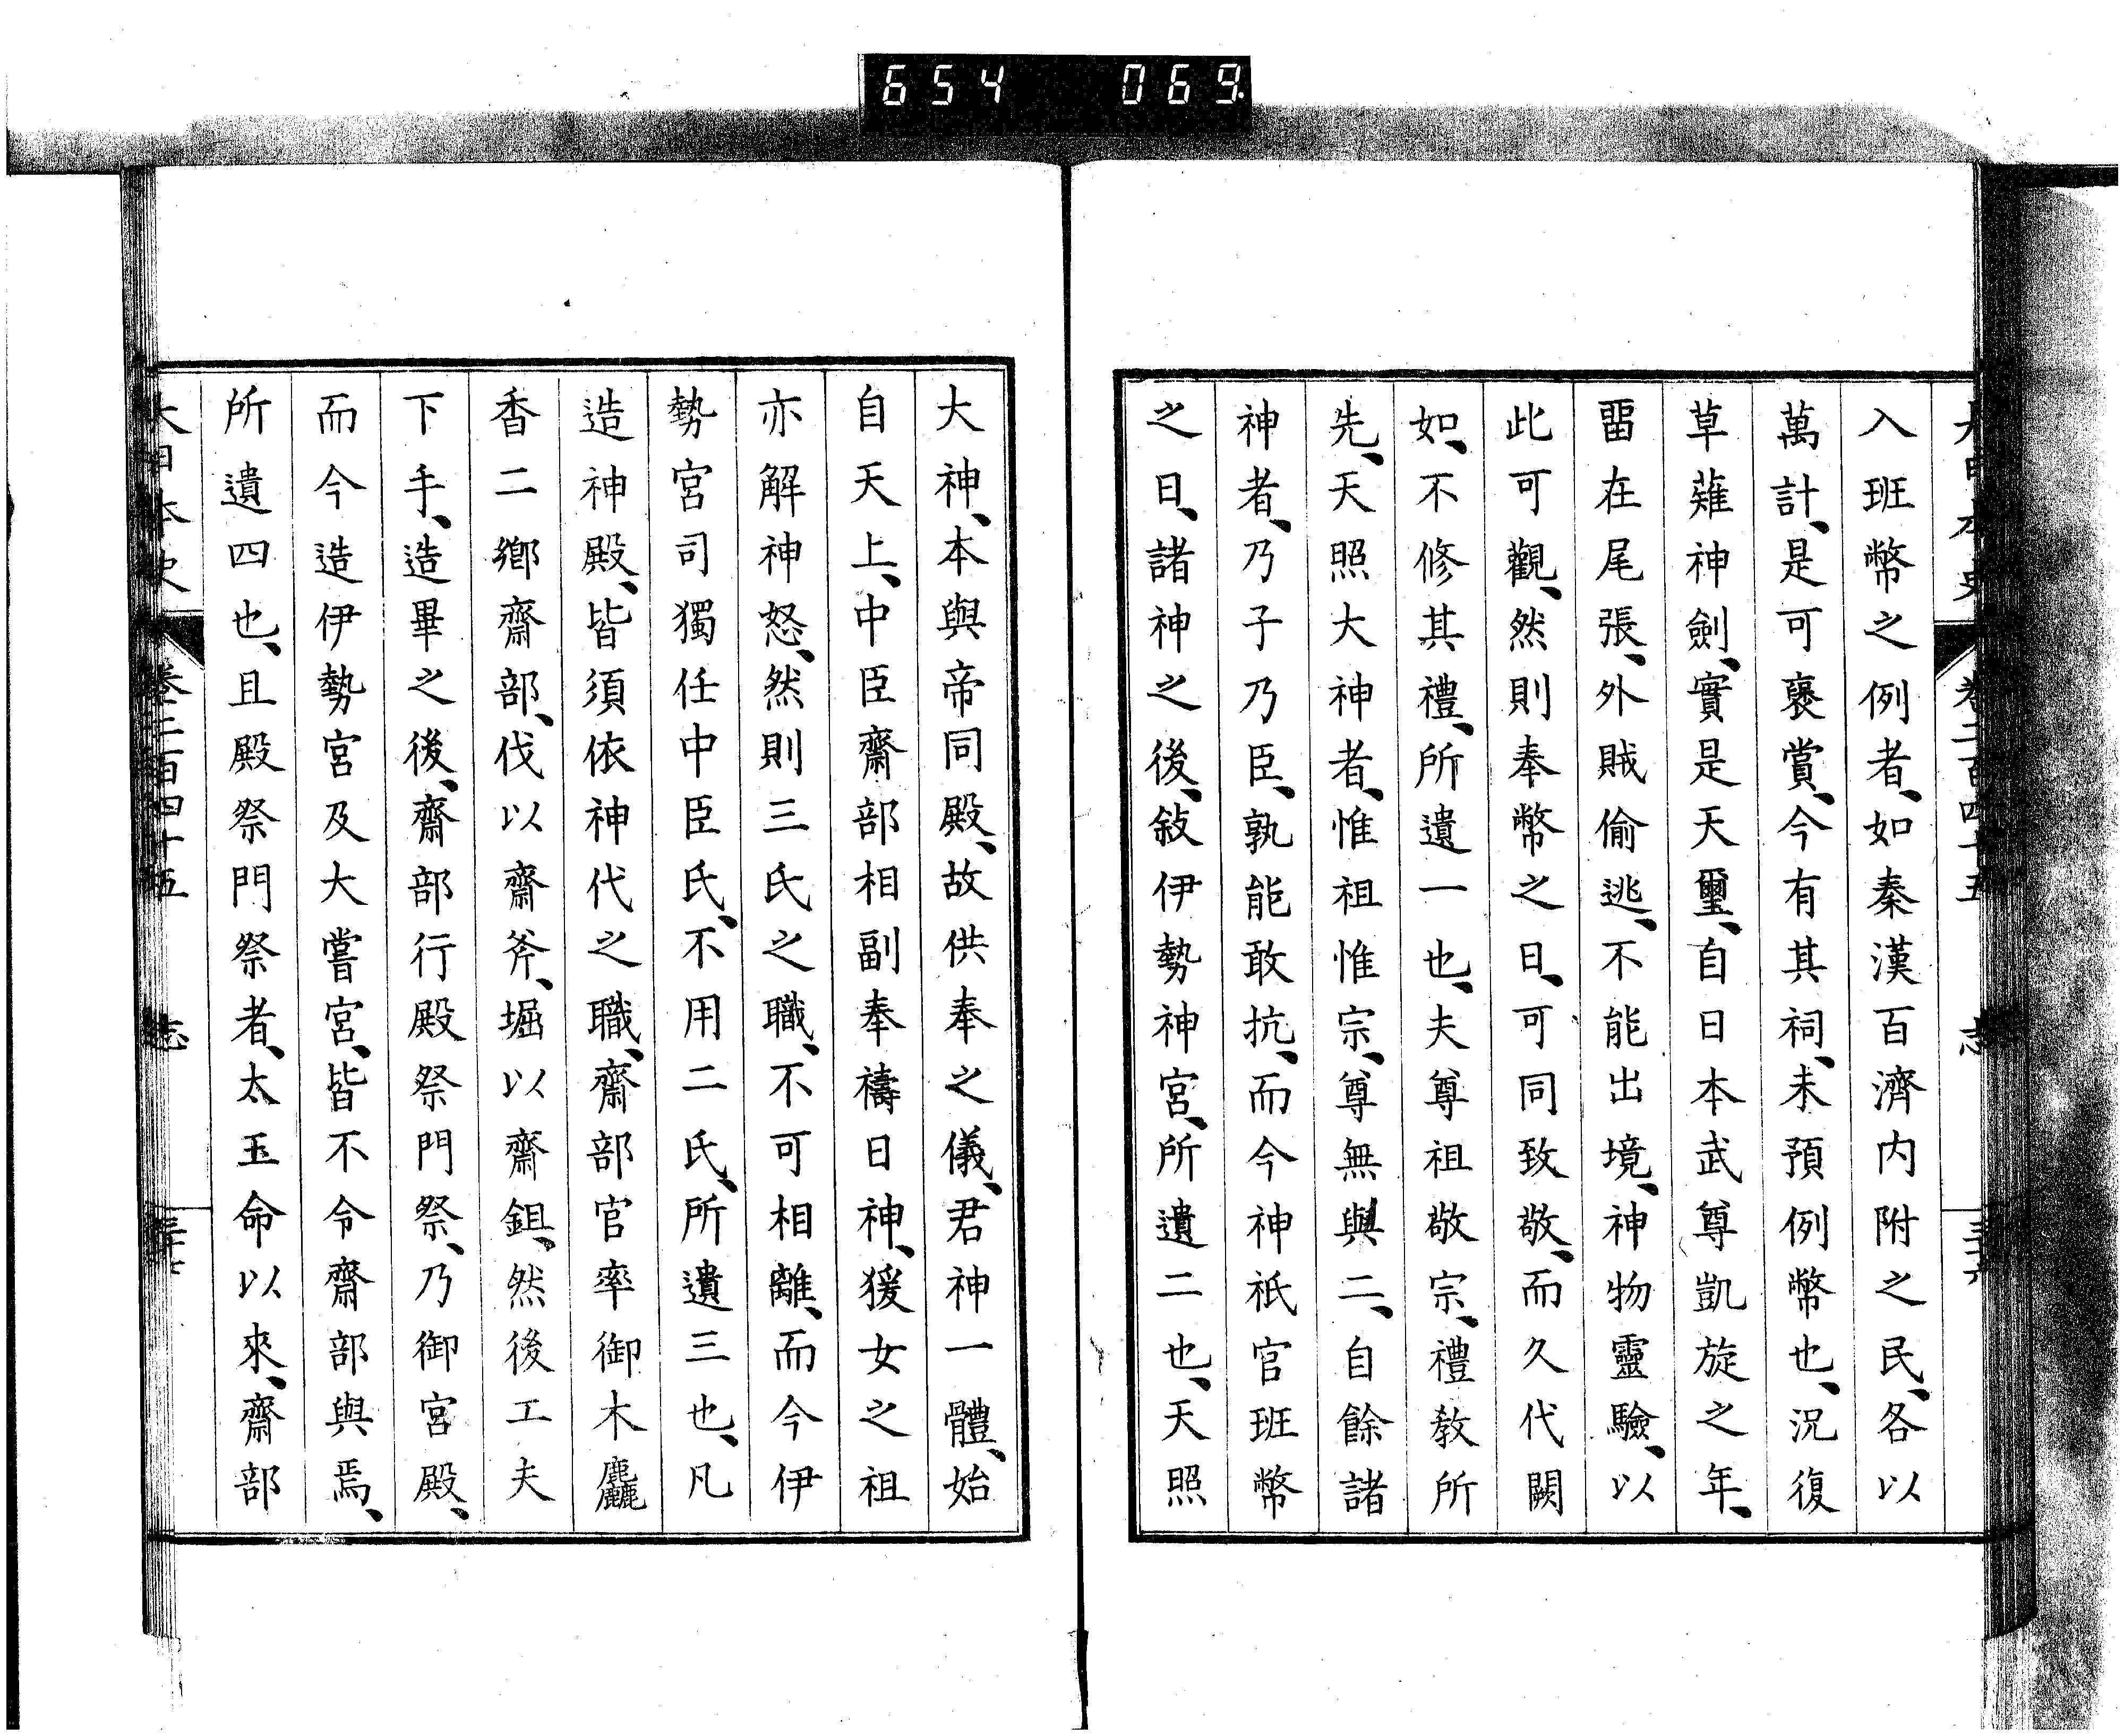 654 069
大日本史 卷二百四十五 志 三十六
入班幣之例者、如秦漢百濟内附之民、各以
萬計、是可襃賞、今有其祠、未預例幣也、況復
草薙神劍、實是天璽、自日本武尊凱旋之年、
畱在尾張、外賊偷逃、不能出境、神物靈驗、以
此可觀、然則奉幣之日、可同致敬、而久代闕
如、不修其禮、所遺一也、夫尊祖敬宗、禮教所
先、天照大神者、惟祖惟宗、尊無與二、自餘諸
神者、乃子乃臣、孰能敢抗、而今神祇官班幣
之日、諸神之後、敍伊勢神宮、所遺二也、天照
大神、本與帝同殿、故供奉之儀、君神一體、始
自天上、中臣齋部相副奉禱日神、猨女之祖
亦解神怒、然則三氏之職、不可相離、而今伊
勢宮司獨任中臣氏、不用二氏、所遺三也、凡
造神殿、皆須依神代之職、齋部官率御木麤
香二鄉齋部、伐以齋斧、堀以齋鉏、然後工夫
下手、造畢之後、齋部行殿祭門祭、乃御宮殿、
而今造伊勢宮及大嘗宮、皆不令齋部與焉、
所遺四也、且殿祭門祭者、太玉命以來、齋部
大日本史 卷二百四十五 志 三十七